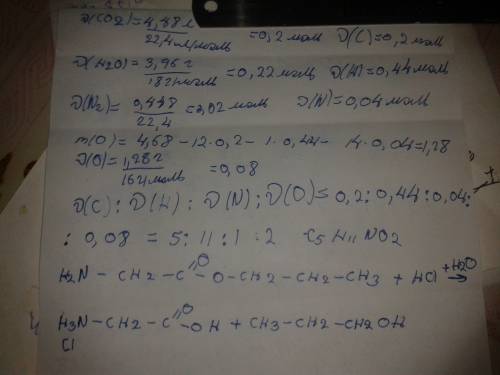 ν(CO2)=4,48л/22,4л/моль =0,2 моль ν(C)=0,2 моль
ν(H2O)=3,96г/18г/моль =0,22моль ν(H)=0,44моль
ν(N2)=0,448/22,4 =0,02 моль ν(N)=0,04 моль
m(O)=4,68-12·0,2-1·0,44-14·0,04=1,28
ν(O)=1,28г/16г/моль =0,08
ν(C):ν(H):ν(N):ν(O)=0,2:0,44:0,04:
:0,08=5:11:1:2 C5H11NO2
H2N-CH2-C(=O)-O-CH2-CH2-CH3 + HCl +H2O →
H3N-CH2-C(=O)-OH + CH3-CH2-CH2OH
Cl